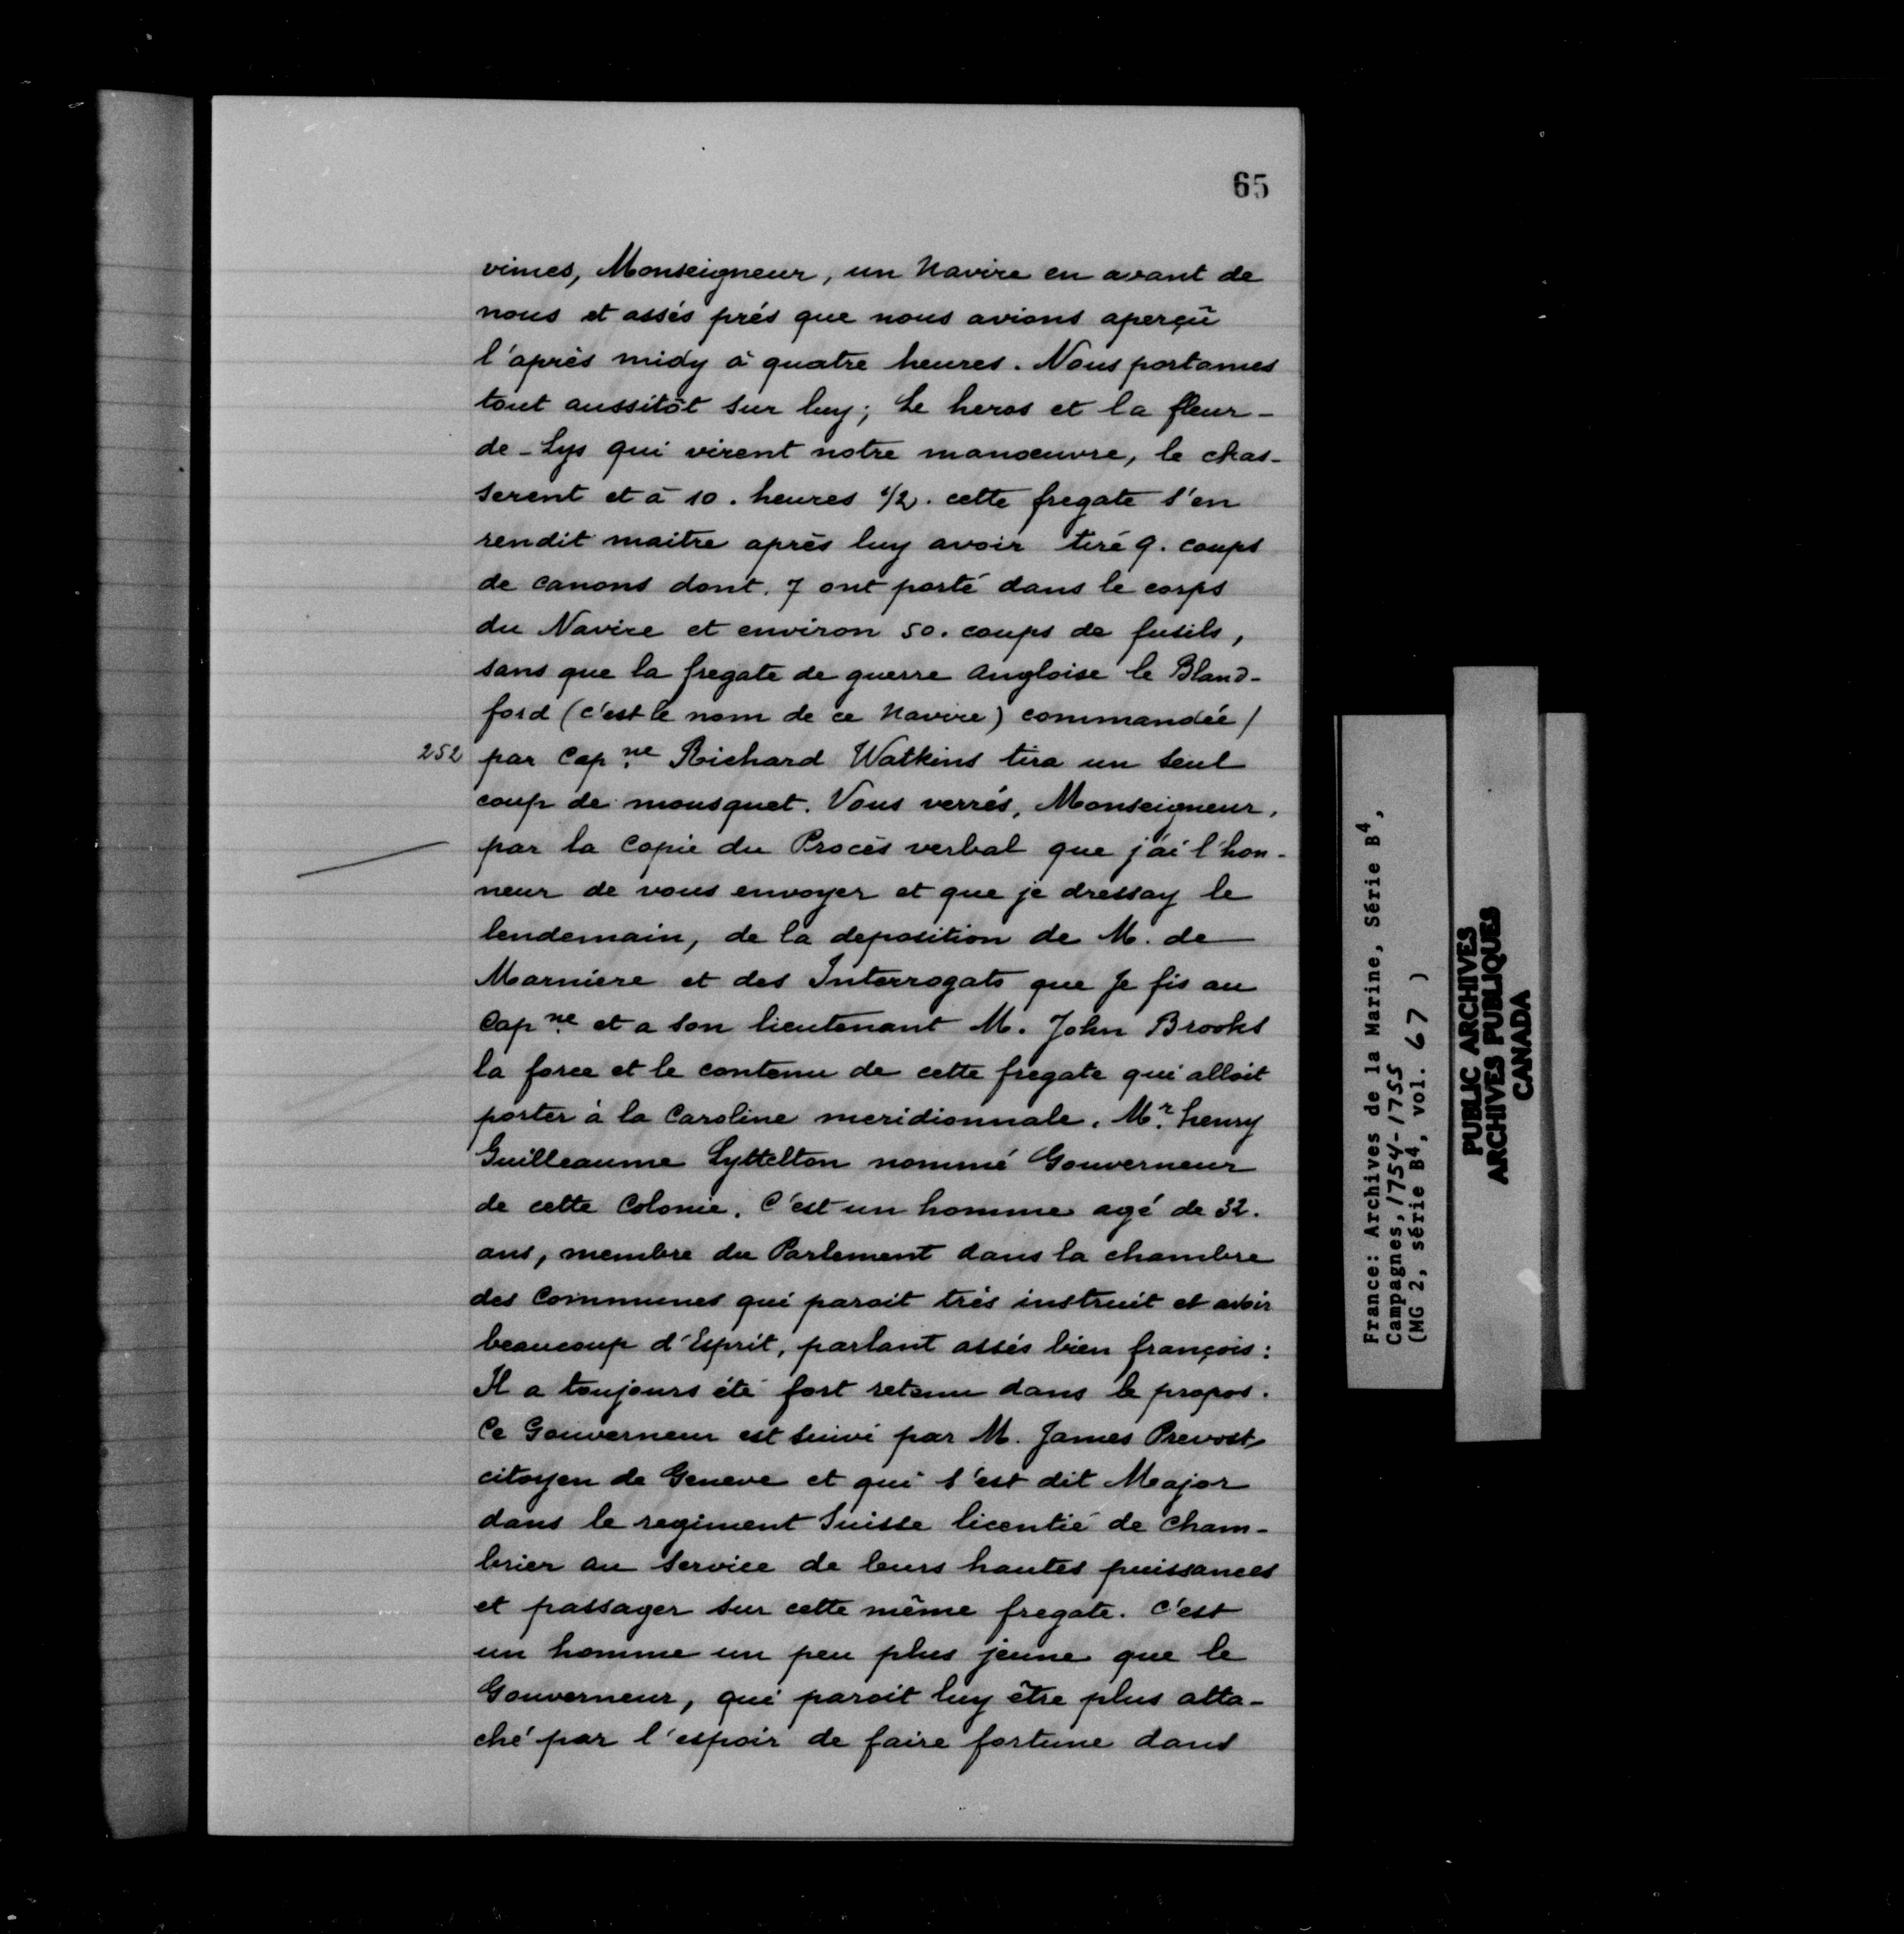 65
vimes, Monseigneur, un Navire en avant de
nous et assés prés que nous avions aperçû
l'après midy à quatre heures. Nous portames
tout aussitôt sur luy; Le heros et la fleur-
de-Lys qui virent notre manoeuvre, le chas-
serent et à 10. heures 1/2. cette fregate s'en
rendit maitre après luy avoir tiré 9. coups
de canons dont. 7 ont porté dans le corps
du Navire et environ 50. coups de fusils,
sans que la fregate de guerre Angloise le Bland-
ford (c'est le nom de ce Navire) commandée/
252 par Cap.ne Richard Watkins tira un seul
coup de mousquet. Vous verrés, Monseigneur,
par la Copie du Procès verbal que j'ai l'hon-
neur de vous envoyer et que je dressay le
lendemain, de la deposition de M. de
Marniere et des Interrogats que Je fis au
Cap.ne et a son lieutenant M. John Brooks
la force et le contenu de cette fregate qui alloit
porter à la Caroline meridionnale, M.r henry
Guilleaume Lyttelton nommé Gouverneur
de cette Colonie. C'est un homme agé de 32.
ans, membre du Parlement dans la chambre
des Communes qui paroit très instruit et avoir
beaucoup d'Esprit, parlant assés bien françois:
Il a toujours été fort retenu dans le propos.
Ce Gouverneur est suivi par M. James Prevost
citoyen de Geneve et qui s'est dit Major
dans le regiment Suisse licentié de Cham-
brier au Service de leurs hautes puissances
et passager sur cette même fregate. C'est
un homme un peu plus jeune que le
Gouverneur, qui paroit luy être plus atta-
ché par l'espoir de faire fortune dans
France: Archives de la Marine, Série B4,
Campagnes, 1754-1755
(MG 2, série B4, vol. 67 )
PUBLIC ARCHIVES
ARCHIVES PUBLIQUES
CANADA